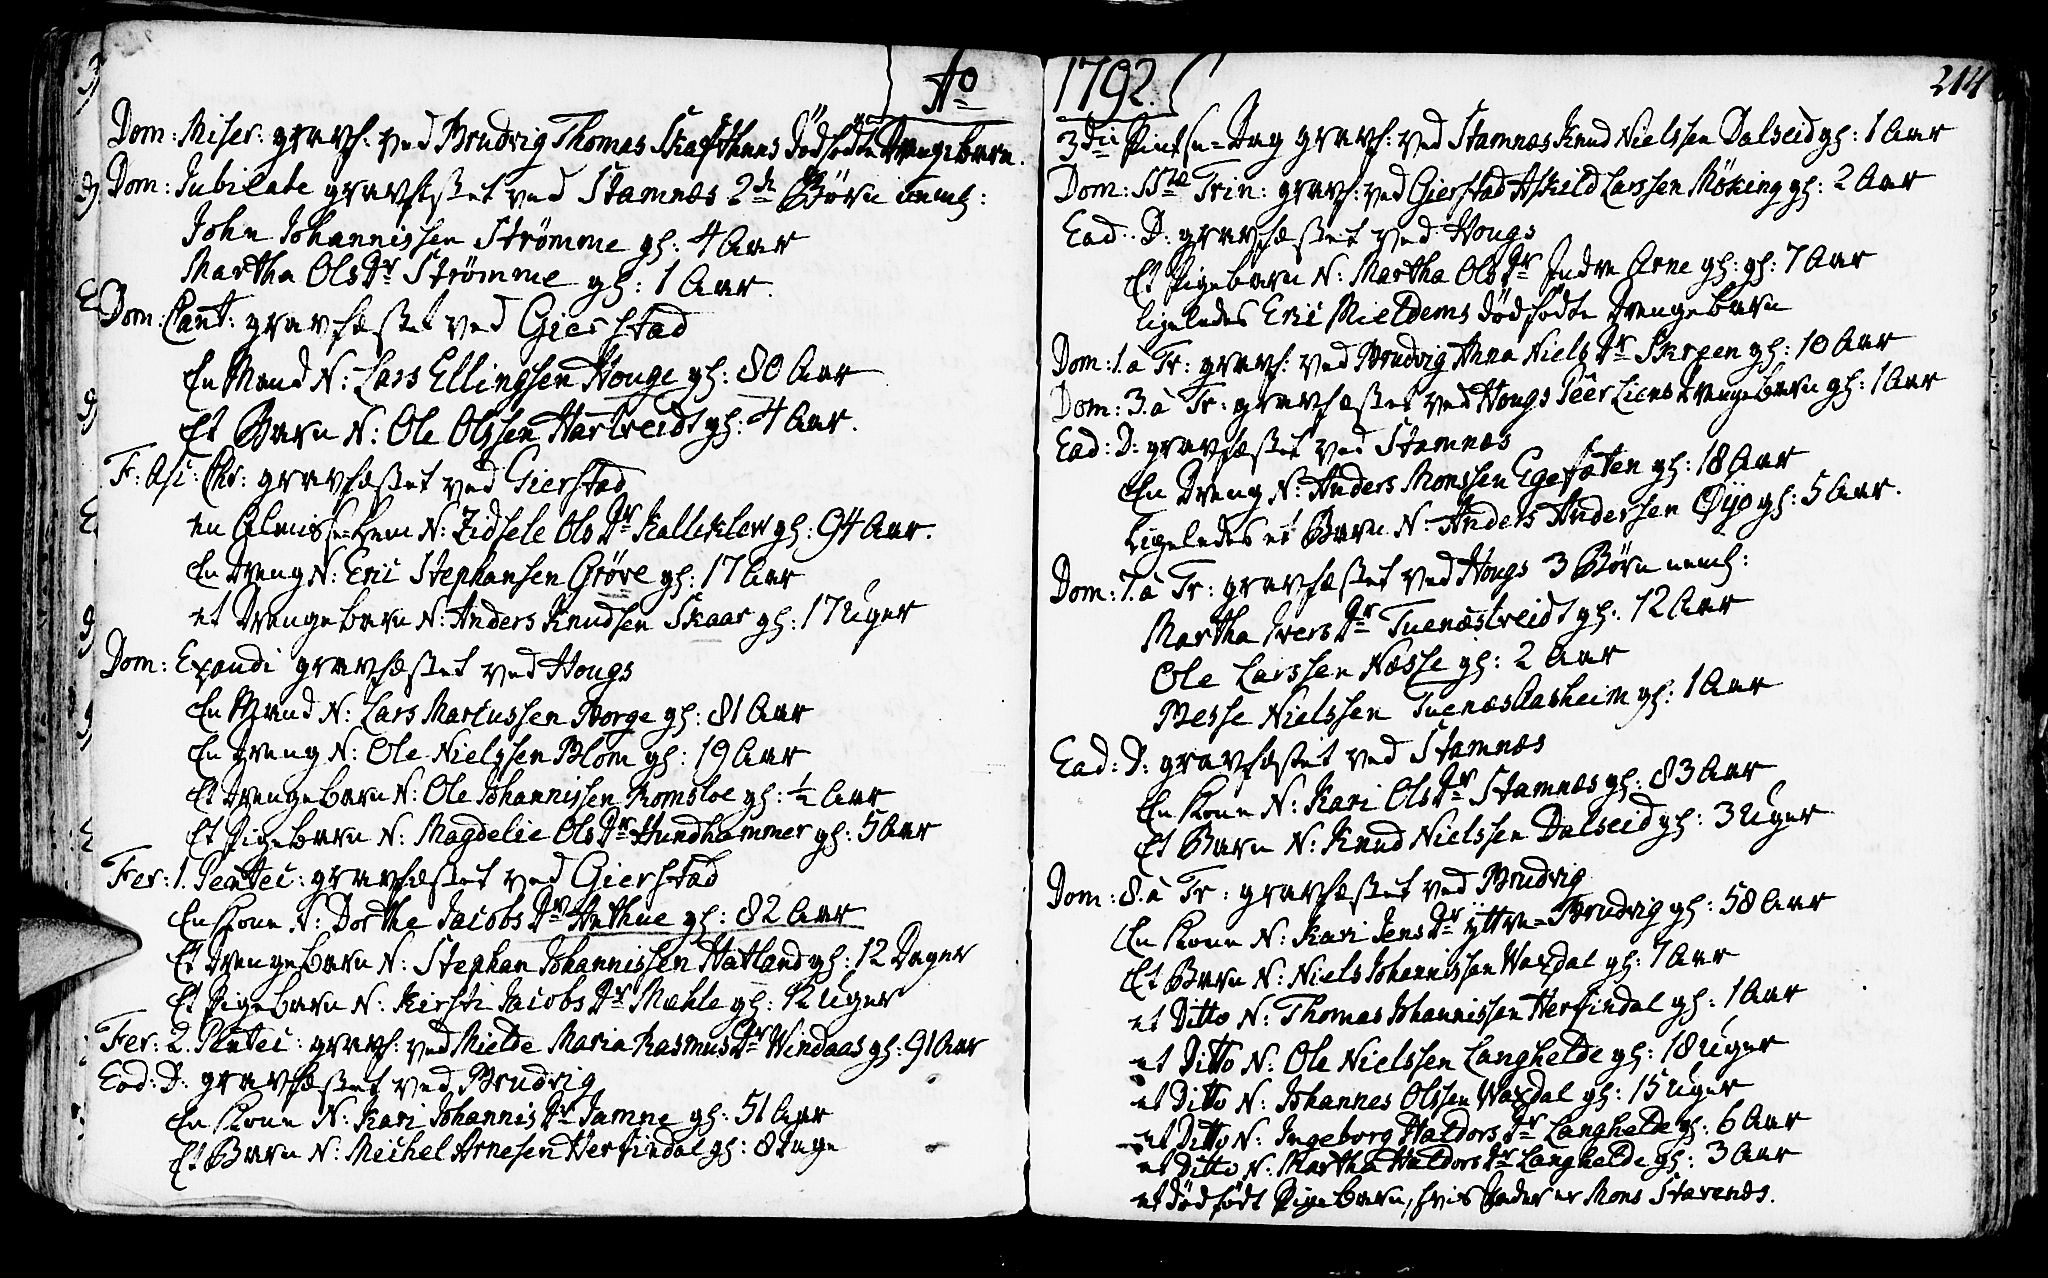 Ao
Dom: Miser: gravf: ved Brudvig Thomas Skafthuns dödfödte Drengebarn.
Dom: Jubilate gravfæstet ved Stamnæs 2de Börn neml:
John Johannissen Strømme gl: 4 Aar
Martha Ols Dr Strømme gl: 1 Aar.
Dom: Cant: gravfæstet ved Gierstad
En Mand N: Lars Ellingsen Houge gl: 80 Aar
Et Barn N: Ole Olssen Hartveidt gl: 4 Aar.
F: Asc: Chr: gravfæstet ved Gierstad
en Almisse-Lem N: Zidsele Ols Dr Kalleklev gl: 94 Aar.
En Dreng N: Eric Stephansen Gröve gl: 17 Aar
et Drengebarn N: Anders Knudsen Skaar gl: 17 Uger
Dom: Exaudi gravfæstet ved Hougs
En Mand N: Lars Martussen Borge gl: 81 Aar
En Dreng N: Ole Nielssen Blom gl: 19 Aar
Et Drengebarn N: Ole Johannissen Romsloe gl: ½ Aar
Et Pigebarn N: Magdelie Ols Dr Hundhammer gl: 5 Aar
Fer: 1. Pentec: gravfæstet ved Gierstad
En Kone N: Dorthe Jacobs Dr Hethue gl: 82 Aar
Et Drengebarn N: Stephan Johannissen Hatland gl: 12 Dager
Et Pigebarn N: Kirsti Jacobs Dr Mæhle gl: 12 Uger
Fer: 2. Pentec: gravf: ved Mielde Maria Rasmus Dr Windaas gl: 91 Aar
Ead: D: gravfæstet ved Brudvig
En Kone N: Kari Johannis Dr Jamne gl: 51 Aar
Et Barn N: Michel Arnesen Herfindal gl: 8 Dage
1792.
214
3die Pintse-Dag gravf: ved Stamnæs Knud Nielssen Dalseid gl: 1 Aar
Dom: SSte Trin: gravf: ved Gierstad Askild Larssen Möking gl: 2 Aar
Ead: D: gravfæstet ved Hougs
Et Pigebarn N: Martha Ols Dr Indre Arne gl: gl: 7 Aar
ligeledes Eric Mieldems dödfödte Drengebarn
Dom: 1. a Tr: gravf: ved Brudvig Anna Niels Dr Skreen gl: 10 Aar
Dom: 3. a Tr: gravfæstet ved Hougs Peer Liens Drengebarn gl: 1 Aar
Ead: D: gravfæstet ved Stamnæs
En Dreng N: Anders Monssen Egesæten gl: 18 Aar
Ligeledes et Barn N: Anders Andersen Øÿe gl: 5 Aar.
Dom: 7. a Tr: gravfæstet ved Hougs 3 Börn neml:
Martha Ivers Dr Tuenæstveidt gl: 12 Aar
Ole Larssen Næsse gl: 2 Aar
Besse Nielssen Tuenæs Aasheim gl: 1 Aar
Ead: D: gravfæstet ved Stamnæs
En Kone N: Kari Ols Dr Stamnæs gl: 83 Aar
Et Barn N: Knud Nielssen Dalseid gl: 3 Uger
Dom: 8. a Tr: gravfæstet ved Brudvig
En Kone N: Kari Jens Dr ÿttre-Brudvig gl: 58 Aar
Et Barn N: Niels Johannissen Waxdal gl: 7 Aar
et Ditto N: Thomas Johannissen Herfindal gl: 1 Aar
et Ditto N: Ole Nielssen Langhelde gl: 18 Uger
et Ditto N: Johannes Olssen Waxdal gl: 15 Uger
et Ditto N: Ingeborg Haldors Dr Langhelde gl: 6 Aar
et Ditto N: Martha Haldors Dr Langhelde gl: 3 Aar
et dödfödt Pigebarn, hvis Fader er Mons Stavenæs.